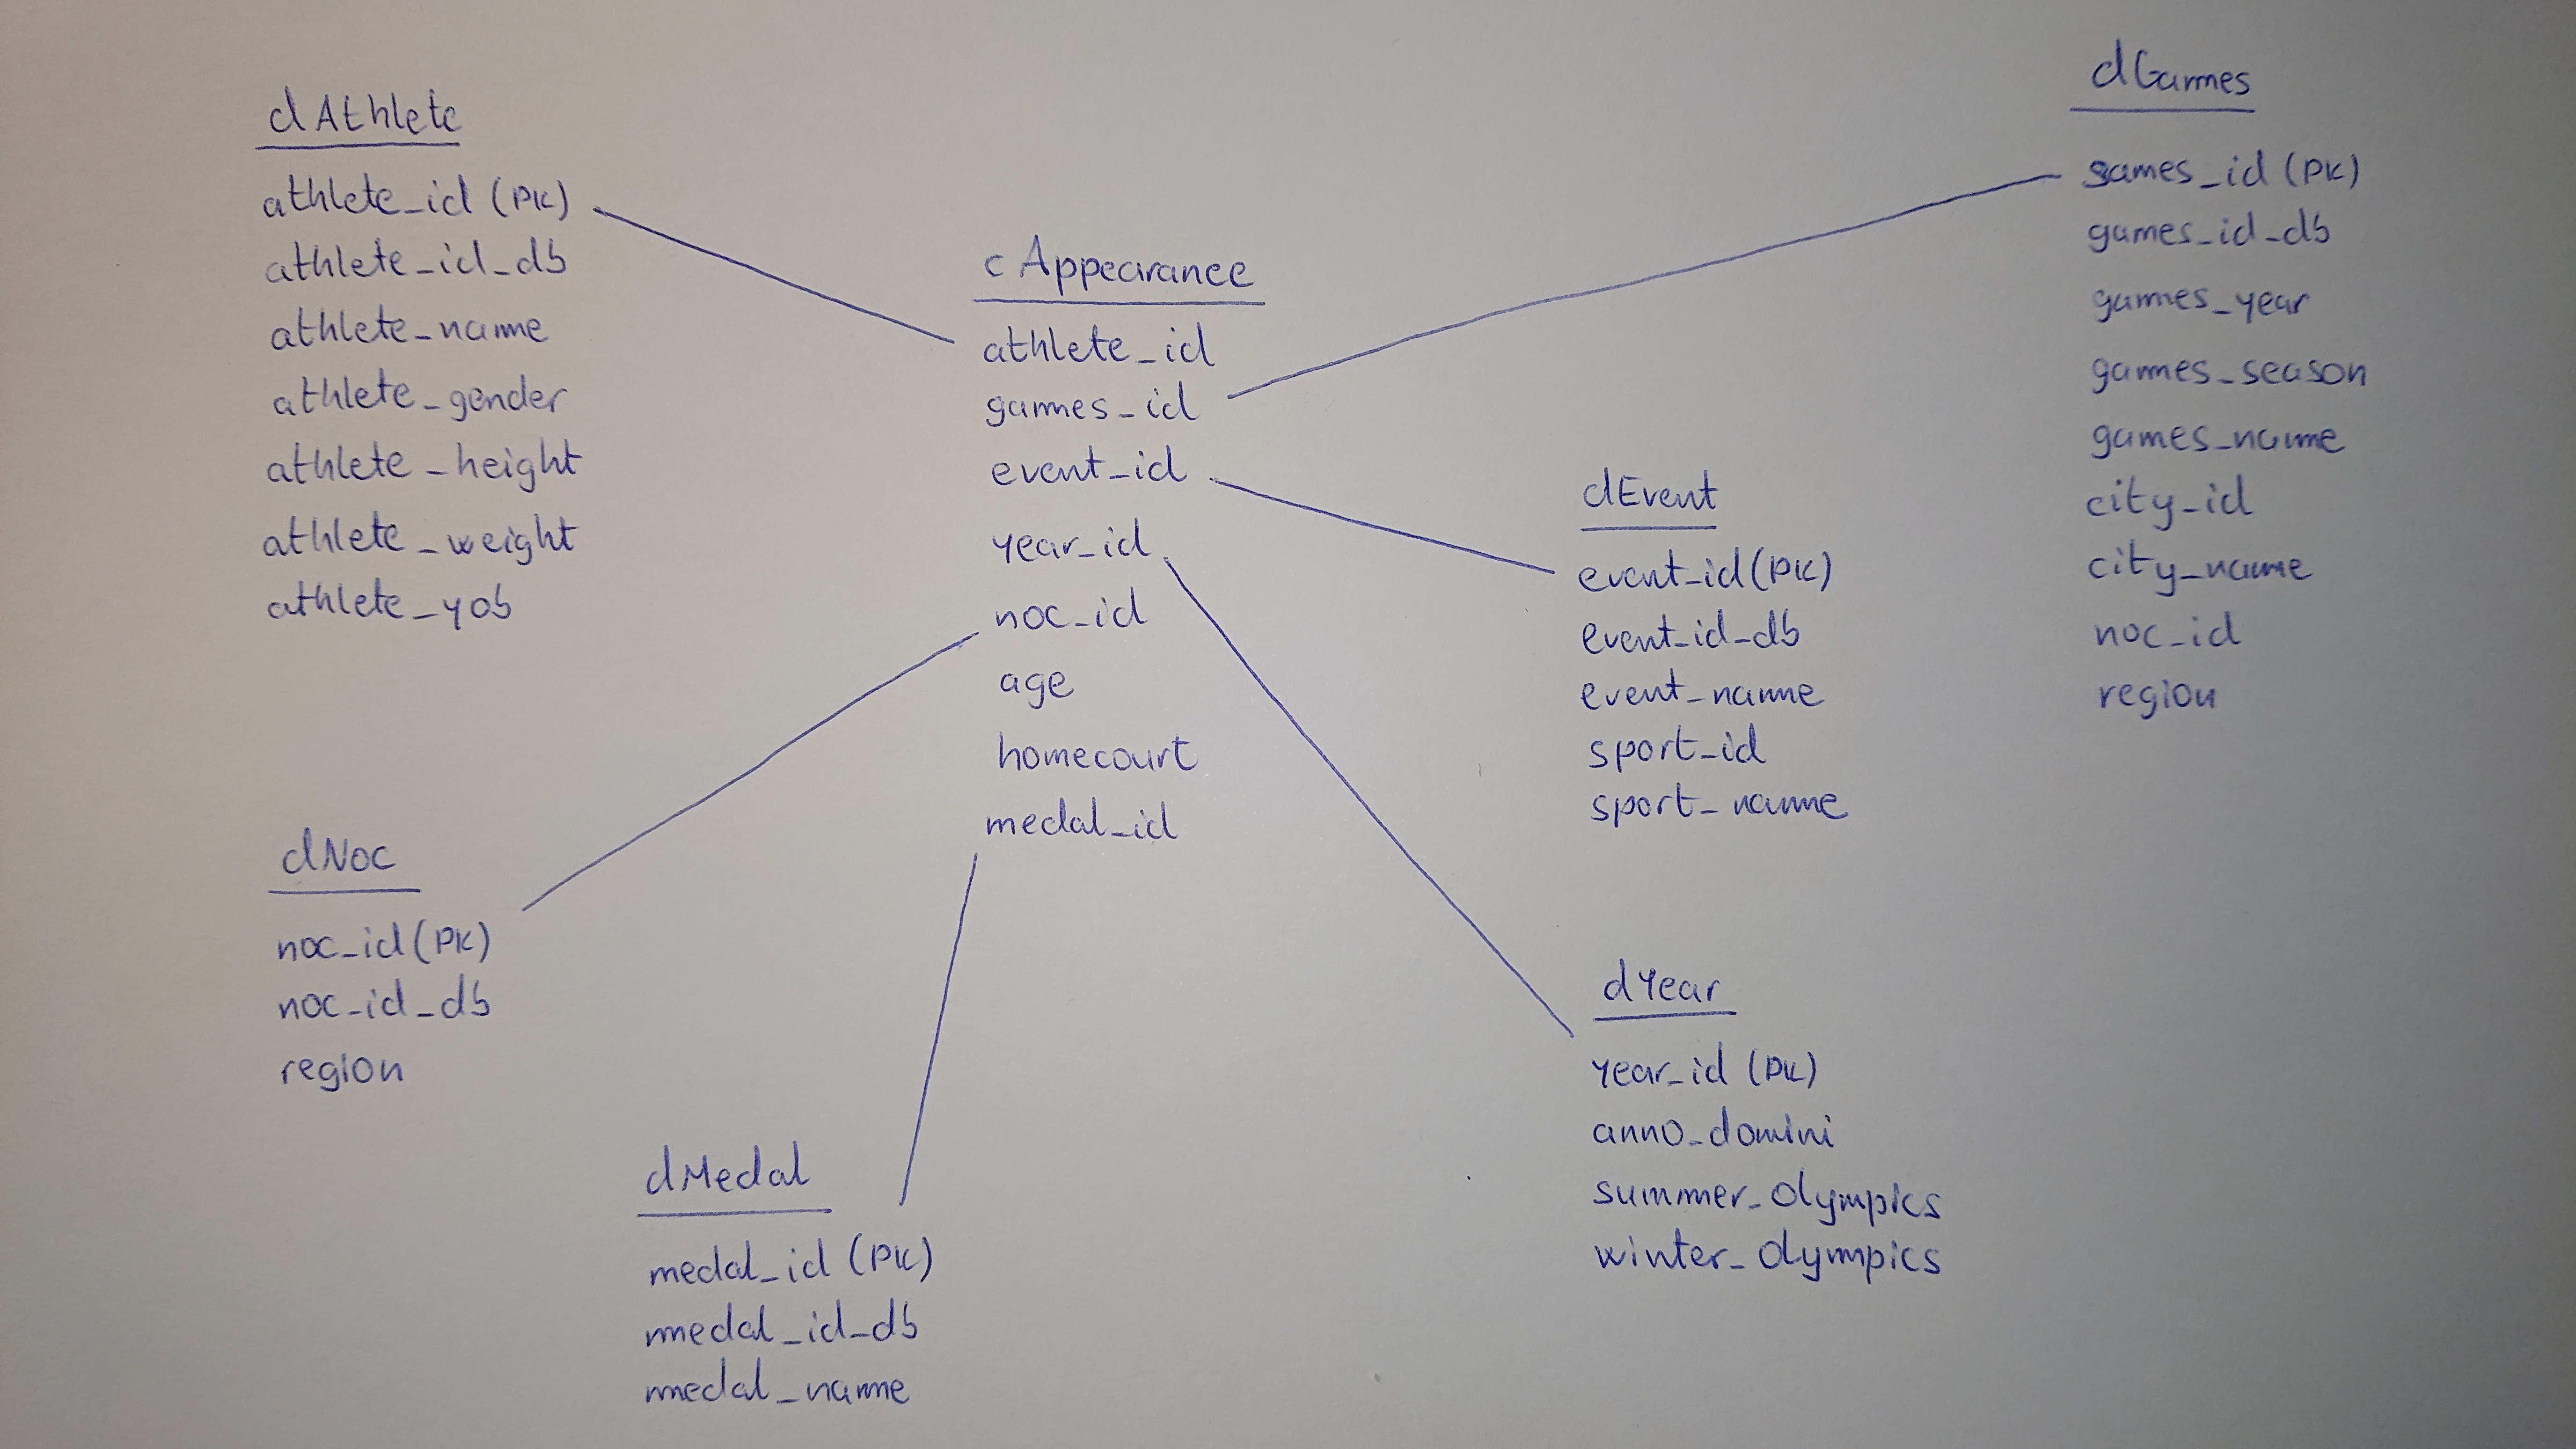 dAthlete
athlete_id (PK)
athlete_id_db
athlete_name
athlete_gender
athlete_height
athlete_weight
athlete_yob
cAppearance
athlete_id
games_id
event_id
year_id
noc_id
age
homecourt
medal_id
dGames
games_id (PK)
games_id_db
games_year
games_season
games_name
city_id
city_name
noc_id
region
dEvent
event_id (PK)
event_id_db
event_name
sport_id
sport_name
dNoc
noc_id (PK)
noc_id_db
region
dMedal
medal_id (PK)
medal_id_db
medal_name
dYear
year_id (PK)
anno_domini
summer_olympics
winter_olympics